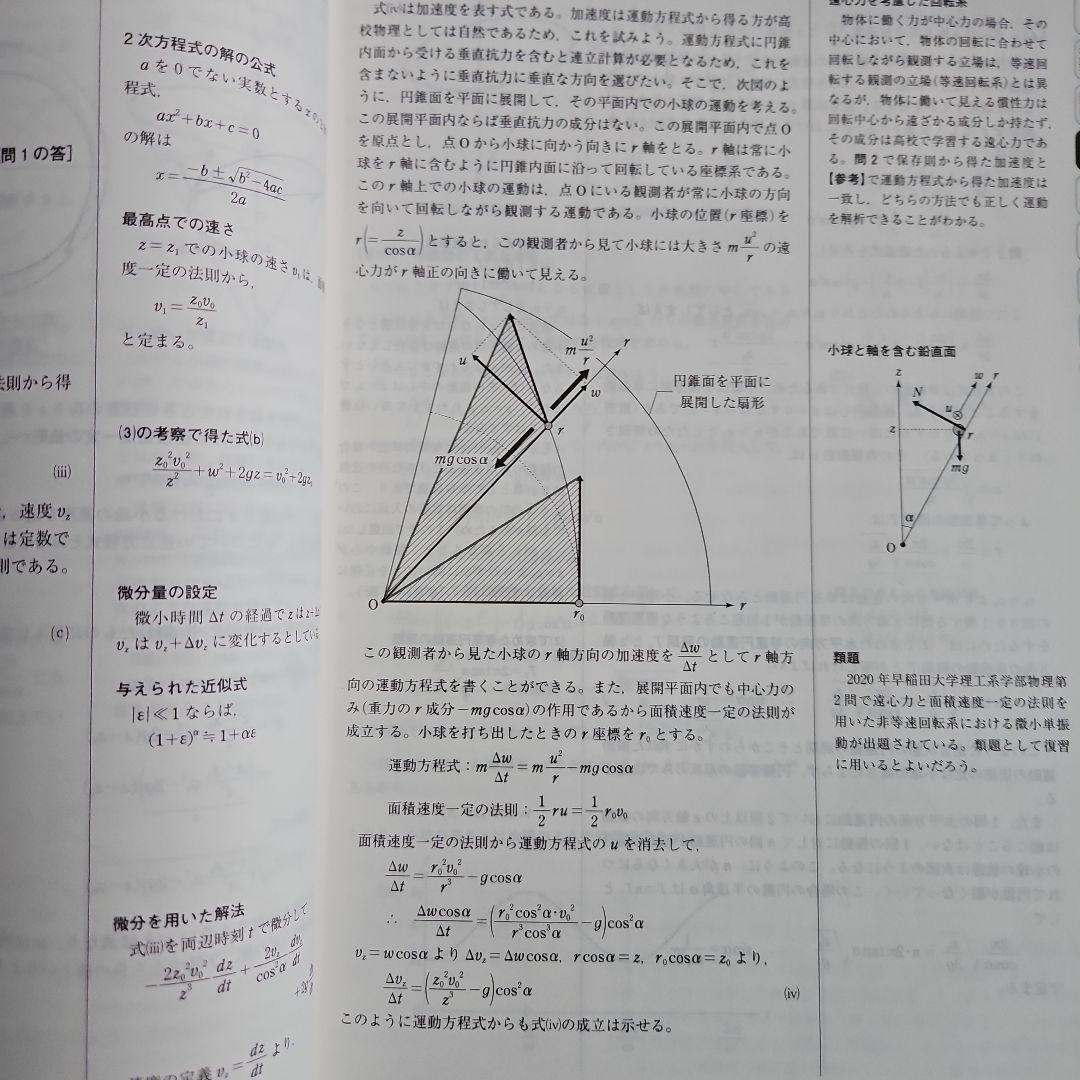 2次方程式の解の公式
aを0でない実数とする
程式,
ax²+bx+c=0
の解は
問1の答]
x=\frac{-b±√b²-4ac}{2a}
最高点での速さ
z=z₁での小球の速さv₁は,
度一定の法則から,
v₁=\frac{z₀v₀}{z₁}
と定まる。
法則から得
(3)の考察で得た式(b)
(iii)
\frac{z₀²v₀²}{z²}+w²+2gz=v₀²+2gz₀
,速度v_z
は定数で
則である。
微分量の設定
微小時間Δtの経過でzは
(c)
v_zはv_z+Δv_zに変化するとしてい
与えられた近似式
|ε|≪1ならば,
(1+ε)^α≒1+αε
微分を用いた解法
式(iii)を両辺時刻tで微分して
-\frac{2z₀²v₀²}{z³}\frac{dz}{dt}+\frac{2v_z}{cos²α}\frac{dv_z}{dt}
速度の定義v_z=\frac{dz}{dt}より,
式(iv)は加速度を表す式である。加速度は運動方程式から得る方が高
校物理としては自然であるため,これを試みよう。運動方程式に円錐
内面から受ける垂直抗力を含むと連立計算が必要となるため,これを
含まないように垂直抗力に垂直な方向を選びたい。そこで,次図のよ
うに,円錐面を平面に展開して,その平面内での小球の運動を考える。
この展開平面内ならば垂直抗力の成分はない。この展開平面内で点O
を原点とし,点Oから小球に向かう向きにr軸をとる。r軸は常に小
球をr軸に含むように円錐内面に沿って回転している座標系である。
このr軸上での小球の運動は,点Oにいる観測者が常に小球の方向
を向いて回転しながら観測する運動である。小球の位置(r座標)を
r(=\frac{z}{cosα})とすると,この観測者から見て小球には大きさm\frac{u²}{r}の遠
心力がr軸正の向きに働いて見える。
m\frac{u²}{r}
r
u
w
r
mgcosα
円錐面を平面に
展開した扇形
O
r₀
r
この観測者から見た小球のr軸方向の加速度を\frac{Δw}{Δt}としてr軸方
向の運動方程式を書くことができる。また,展開平面内でも中心力の
み(重力のr成分-mgcosα)の作用であるから面積速度一定の法則が
成立する。小球を打ち出したときのr座標をr₀とする。
運動方程式:m\frac{Δw}{Δt}=m\frac{u²}{r}-mgcosα
面積速度一定の法則:\frac{1}{2}ru=\frac{1}{2}r₀v₀
面積速度一定の法則から運動方程式のuを消去して,
\frac{Δw}{Δt}=\frac{r₀²v₀²}{r³}-gcosα
∴ \frac{Δwcosα}{Δt}=(\frac{r₀²cos²α·v₀²}{r³cos³α}-g)cos²α
v_z=wcosαよりΔv_z=Δwcosα, rcosα=z, r₀cosα=z₀より,
\frac{Δv_z}{Δt}=(\frac{z₀²v₀²}{z³}-g)cos²α (iv)
このように運動方程式からも式(iv)の成立は示せる。
物体に働く力が中心力の場合,その
中心において,物体の回転に合わせて
回転しながら観測する立場は,等速回
転する観測の立場(等速回転系)とは異
なるが,物体に働いて見える慣性力は
回転中心から遠ざかる成分しか持たず,
その成分は高校で学習する遠心力であ
る。問2で保存則から得た加速度と
【参考】で運動方程式から得た加速度は
一致し,どちらの方法でも正しく運動
を解析できることがわかる。
小球と軸を含む鉛直面
z
w
r
N
u
z
r
mg
α
O
類題
2020年早稲田大学理工系学部物理第
2問で遠心力と面積速度一定の法則を
用いた非等速回転系における微小単振
動が出題されている。類題として復習
に用いるとよいだろう。